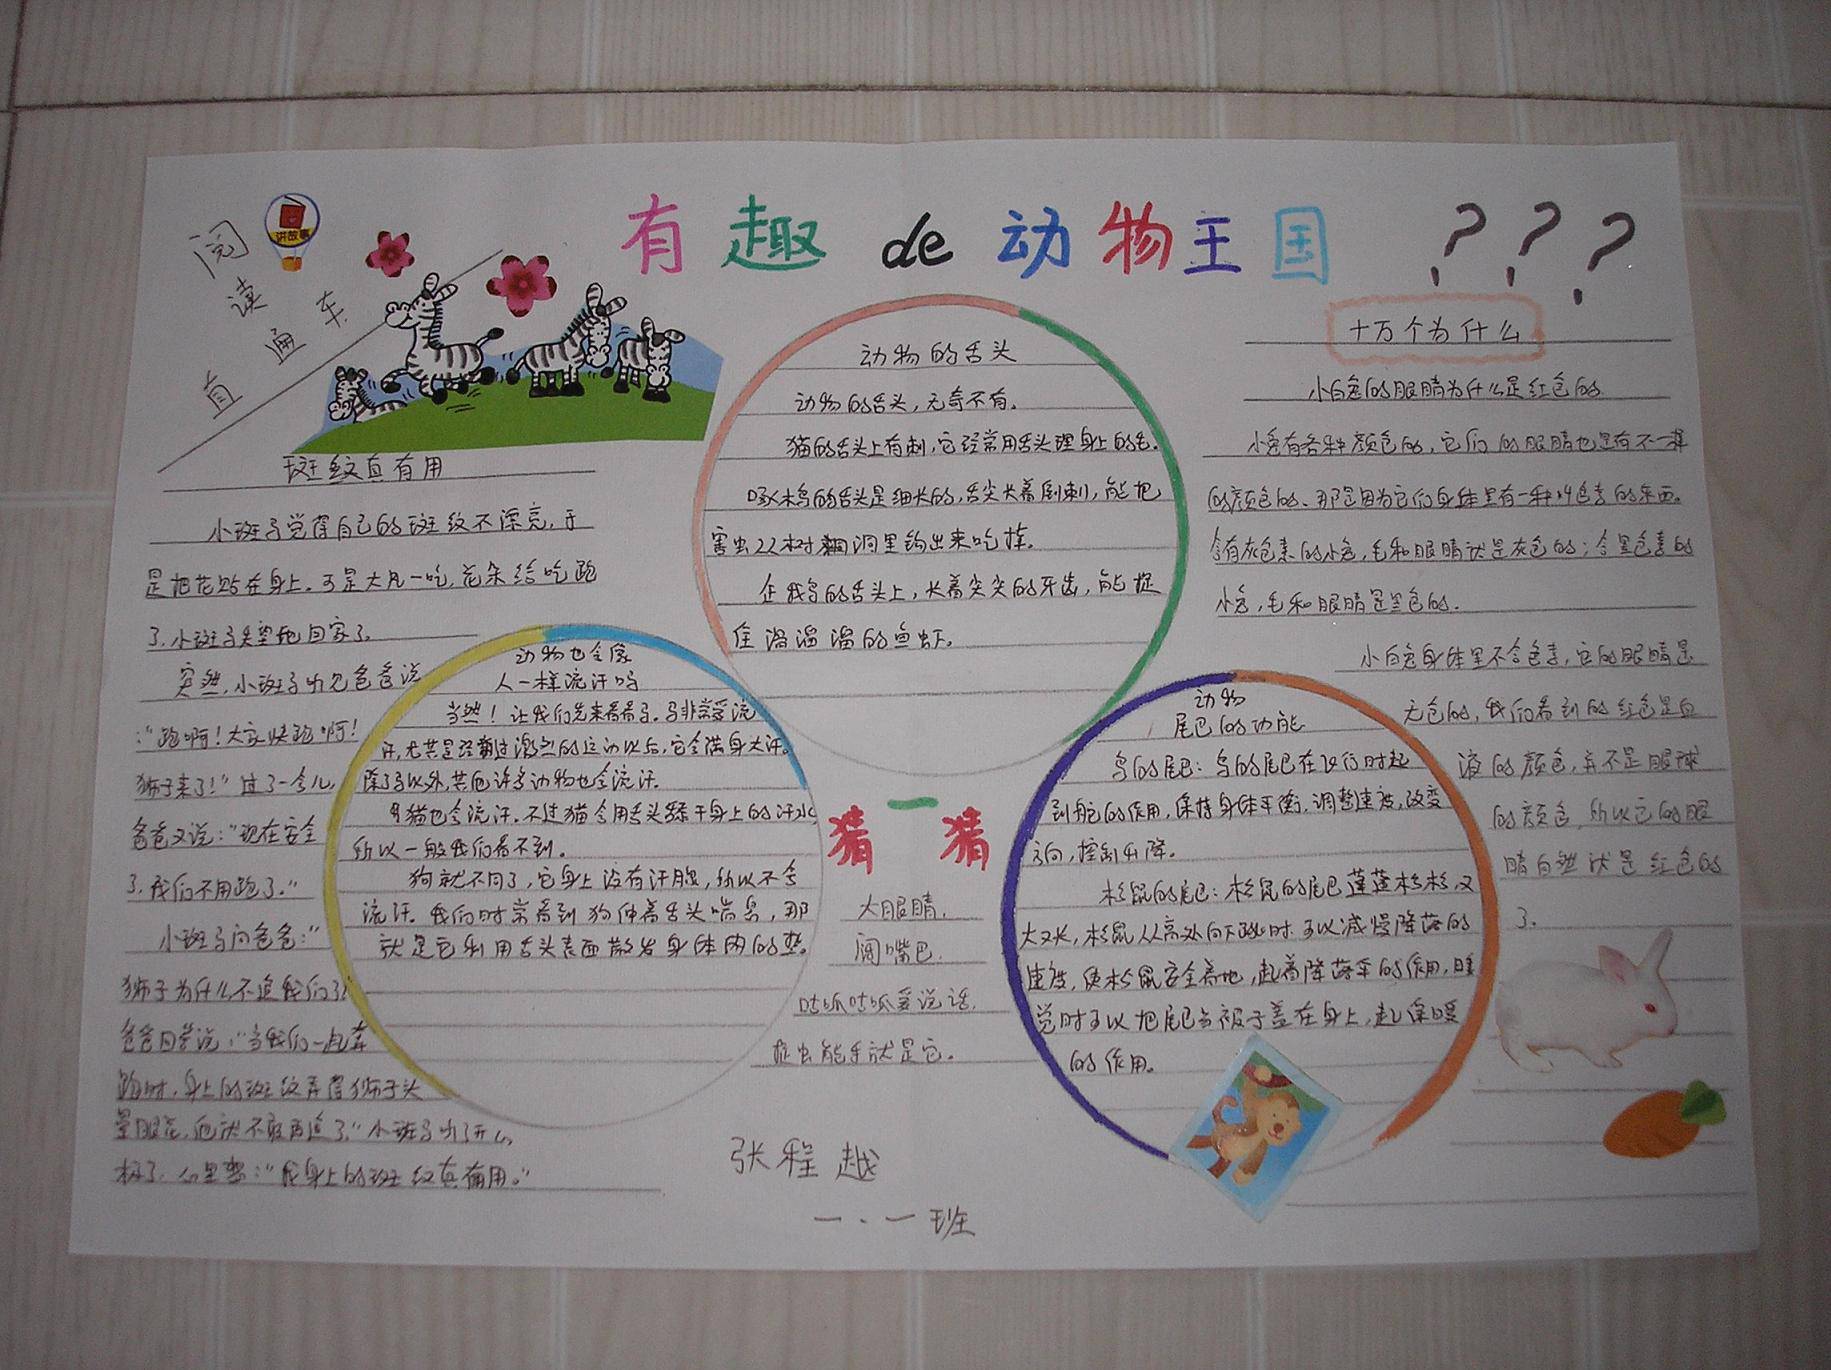 有趣de动物王国
???
阅读直通车
讲故事
斑纹真有用
小斑马觉得自己的斑纹不漂亮,于
是把花贴在身上。可是大风一吹,花朵给吹跑
了,小斑马失望地回家了。
突然,小斑马听见爸爸说
:“跑啊!大家快跑啊!
狮子来了!”过了一会儿,
爸爸又说:“现在安全
了,我们不用跑了。”
小斑马问爸爸:“
狮子为什么不追我们了?
爸爸回答说:“当我们一起奔
跑时,身上的斑纹弄得狮子头
晕眼花,他就不敢再追了。”小斑马听了开心
极了,心里想:“我身上的斑纹真有用。”
动物的舌头
动物的舌头,无奇不有。
猫的舌头上有刺,它经常用舌头理身上的毛。
啄木鸟的舌头是细长的,舌尖长着倒刺,能把
害虫从树洞里钩出来吃掉。
企鹅鸟的舌头上,长着尖尖的牙齿,能捉
住溜溜溜的鱼虾。
动物也会像
人一样流汗吗
当然!让我们先来看看马。马非常爱流
汗,尤其是经过激烈的运动以后,它会满身大汗。
除了马以外,其他许多动物也会流汗。
猫也会流汗。不过猫会用舌头舔干身上的汗水,
所以一般我们看不到。
狗就不同了,它身上没有汗腺,所以不会
流汗。我们时常看到狗伸着舌头喘息,那
就是它利用舌头表面散发身体内的热。
猜一猜
大眼睛,
阔嘴巴,
咕呱咕呱爱说话,
捉虫能手就是它。
动物
尾巴的功能
鸟的尾巴:鸟的尾巴在飞行时起
到舵的作用,保持身体平衡,调整速度,改变
方向,控制升降。
松鼠的尾巴:松鼠的尾巴蓬蓬松松,又
大又长,松鼠从高处向下跳时可以减慢降落的
速度,使松鼠安全着地,起着降落伞的作用,睡
觉时可以把尾巴当被子盖在身上,起保暖
的作用。
十万个为什么
小白兔的眼睛为什么是红色的
小兔有各种颜色的,它们的眼睛也是有不一样
的颜色的。那是因为它们身体里有一种叫色素的东西。
含有灰色素的小兔,毛和眼睛就是灰色的;含黑色素的
小兔,毛和眼睛是黑色的。
小白兔身体里不含色素,它的眼睛是
无色的,我们看到的红色是血
液的颜色,并不是眼球
的颜色,所以它的眼
睛自然就是红色的
了。
张程越
一.一班